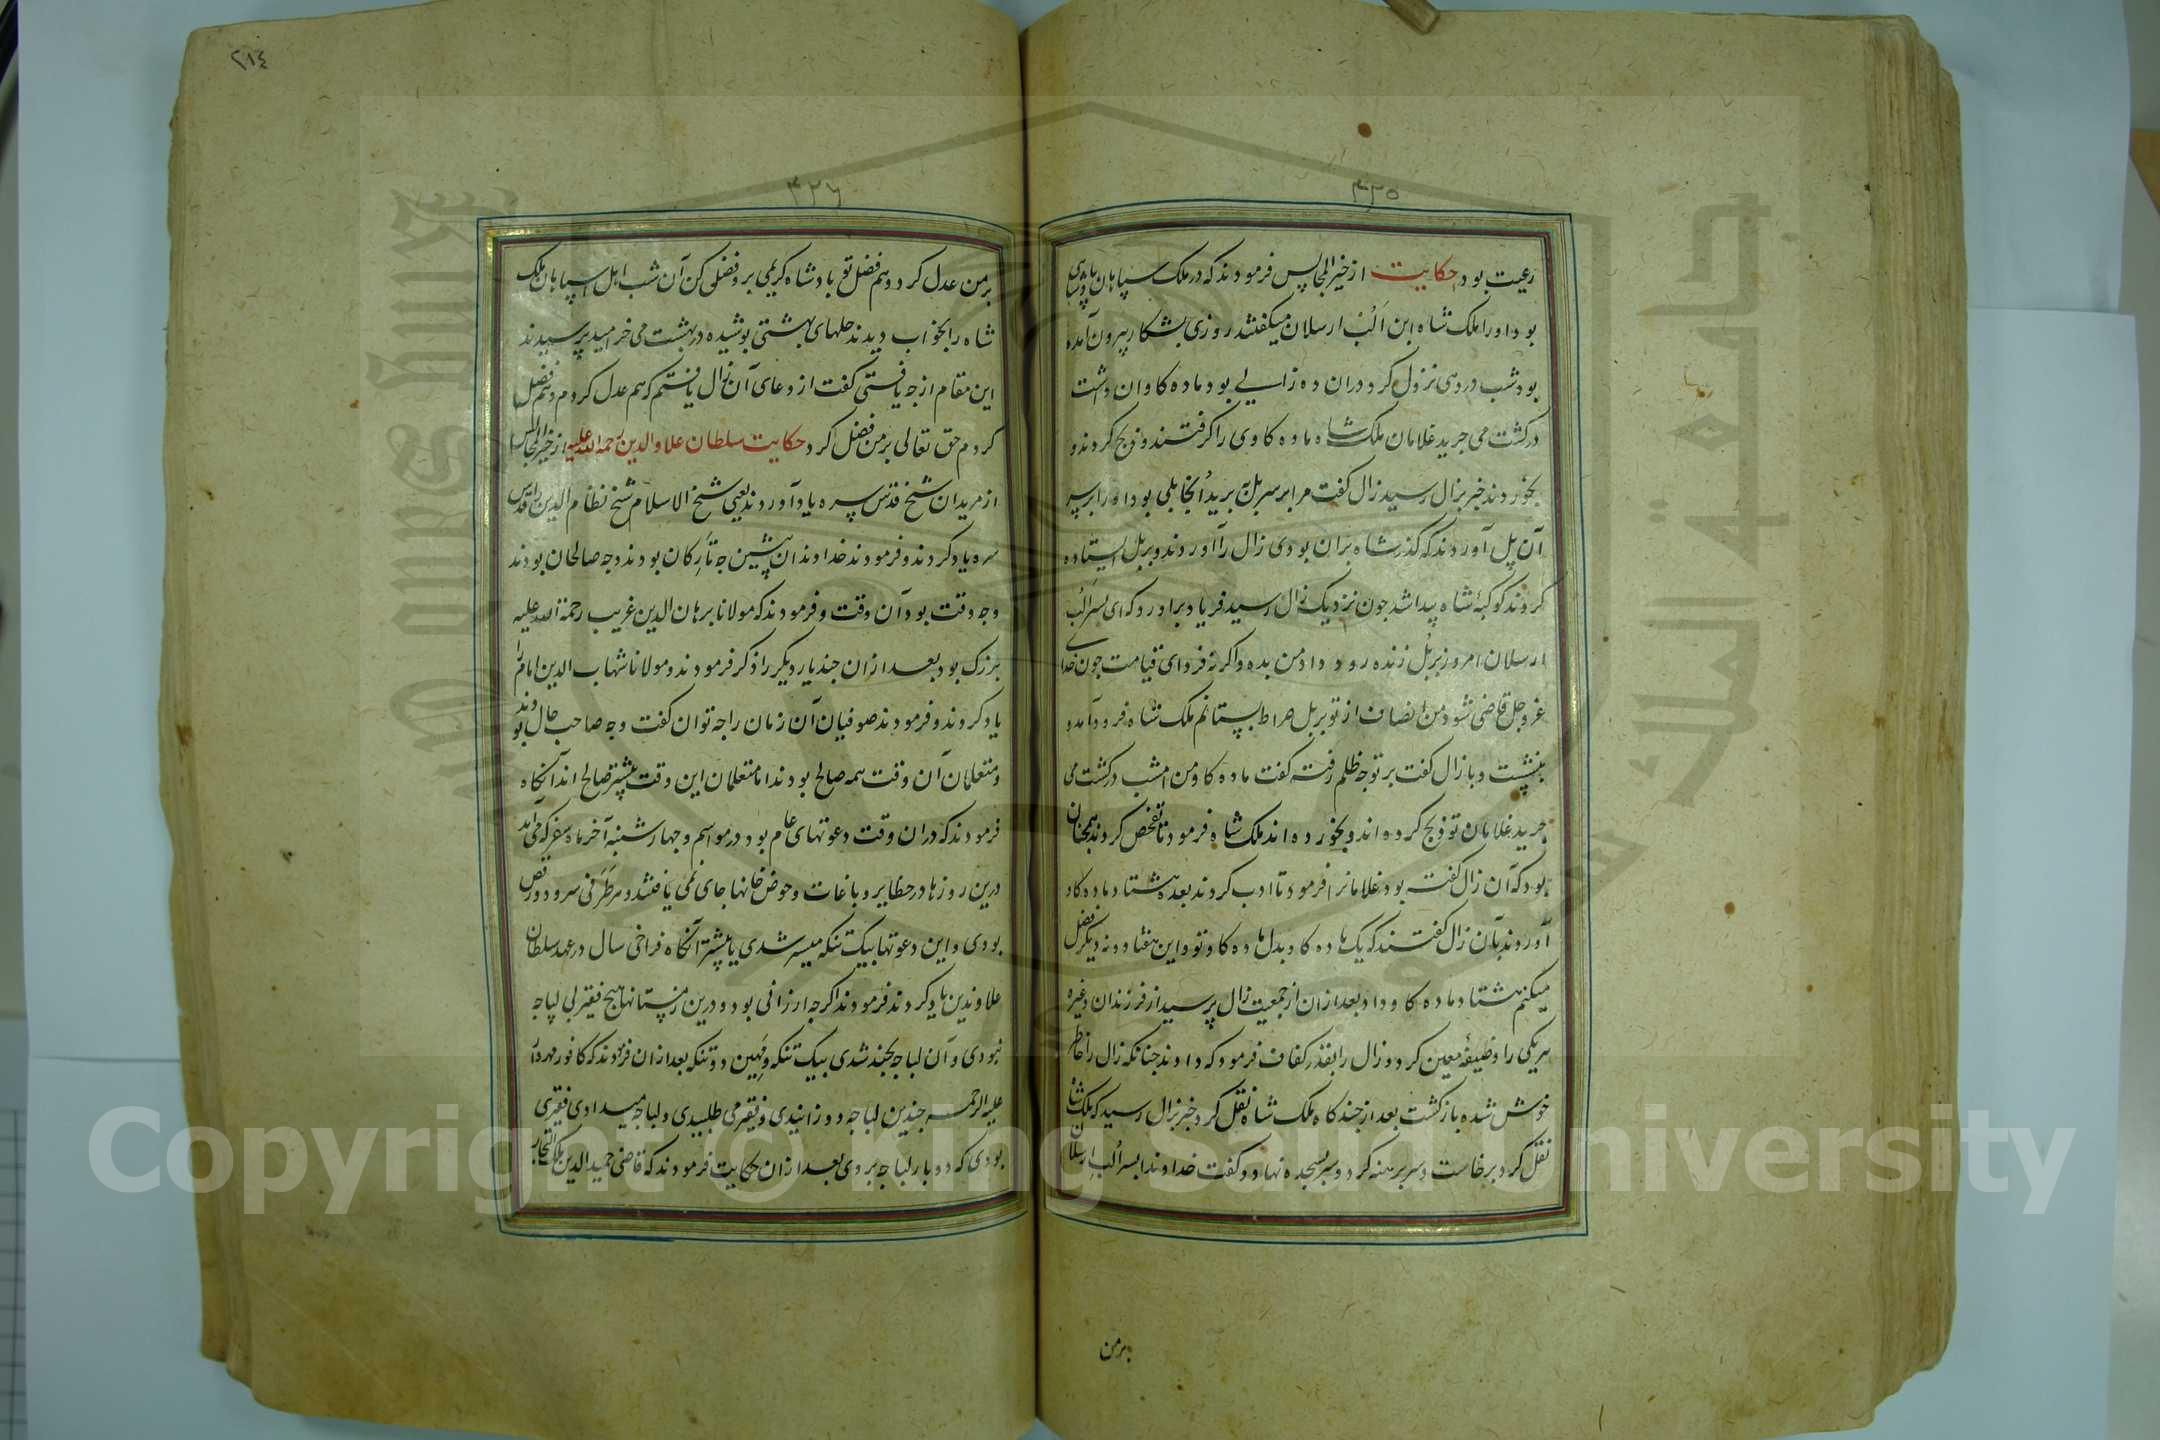 ۲۱٤
۴۲۵
رعیت بود حکایت از خیر المجالس فرمودند که در ملک سپاهان پادشاهی
بود او را ملک شاه ابن الب ارسلان میکفتند روزی بشکار بیرون آمده
بود شب در دهی نزول کرد دران ده زالی بود ماده کاوان داشت
در کشت می چرید غلامان ملک شاه ماده کاوی را کرفتند و ذبح کردند و
بخوردند خبر بزال رسید زال کفت مرا بر سر پل برید آنجا پلی بود او را بر سر
آن پل آوردند که کذر شاه بران بودی زال را آوردند و بر پل ایستاده
کردند کوکبهٔ شاه پیدا شد چون نزدیک زال رسید فریاد برآورد که ای پسر الب
ارسلان امروز بر پل زنده رود داد من بده و اکر نه فردای قیامت چون خدای
عز و جل قاضی شود من انصاف از تو بر پل صراط بستانم ملک شاه فرود آمد و
بنشست و با زال کفت بر تو چه ظلم رفته کفت ماده کاو من امشب در کشت می
چرید غلامان تو ذبح کرده اند و بخورده اند ملک شاه فرمود تا تفحص کردند همچنان
بود که آن زال کفته بود غلامانرا فرمود تا ادب کردند بعده هشتاد ماده کاو
آوردند بآن زال کفتند که یک ماده کاو بدل ماده کاو تو و این هفتاد و نه دیکر فضل
میکنم هشتاد ماده کاو داد بعد ازان از جمعیت زال پرسید از فرزندان و غیره
هر یکی را وظیفهٔ معین کرد و زال را بقدر کفاف فرمود که دادند چنانکه زال را خاطر
خوش شده بازکشت بعد از چند کاه ملک شاه نقل کرد خبر بزال رسید که ملک شاه
نقل کرد برخاست و سر برهنه کرد و سر بسجده نهاد و کفت خداوندا پسر الب ارسلان
بر من
۴۲۶
بر من عدل کرد و هم فضل تو بادشاه کریمی برو فضلی کن آن شب اهل سپاهان ملک
شاه را بخواب دیدند حلهای بهشتی بوشیده در بهشت می خرامید پرسیدند
این مقام از چه یافتی کفت از دعای آن زال یافتم که هم عدل کردم و هم فضل
کردم حق تعالی بر من فضل کرد حکایت سلطان علاو الدین رحمة الله علیه از خیر المجالس
از مریدان شیخ قدس سره یاد آوردند یعنی شیخ الاسلام شیخ نظام الدین را قدس
سره یاد کردند و فرمودند خداوندان پیشین چه تارکان بودند و چه صالحان بودند
و چه وقت بود آن وقت و فرمودند که مولانا برهان الدین غریب رحمة الله علیه
بزرک بود بعد ازان چند یار دیکر را ذکر فرمودند و مولانا شهاب الدین امام را
یاد کردند و فرمودند صوفیان آن زمان را چه توان کفت و چه صاحب حال بودند
و متعلمان آن وقت همه صالح بودند اما متعلمان این وقت بیشتر صالح اند آنکاه
فرمودند که دران وقت دعوتهای عام بود در مواسم و چهارشنبه آخر ماه صفر که می آمد
درین روزها در حظایر و باغات و حوض خانها جای نمی یافتند و هر طرفی سرود و رقص
بودی و این دعوتها بیک تنکه میسر شدی یا بیشتر آنکاه فراخی سال در عهد سلطان
علاوندین یاد کردند فرمودند اکرچه ارزانی بود و درین زمستانها هیچ فقیر بی لباچه
نبودی و آن لباچه بچند شدی بیک تنکه و مهین دو تنکه بعد ازان فرمودند که کافور مهردار
علیه الرحمه چندین لباچه دوزانیدی و فقیر می طلبیدی و لباچه میدادی فقیری
بودی که دو بار لباچه بردی بعد ازان حکایت فرمودند که قاضی حمید الدین ملک التجار
Copyright © King Saud University
جامعة الملك سعود